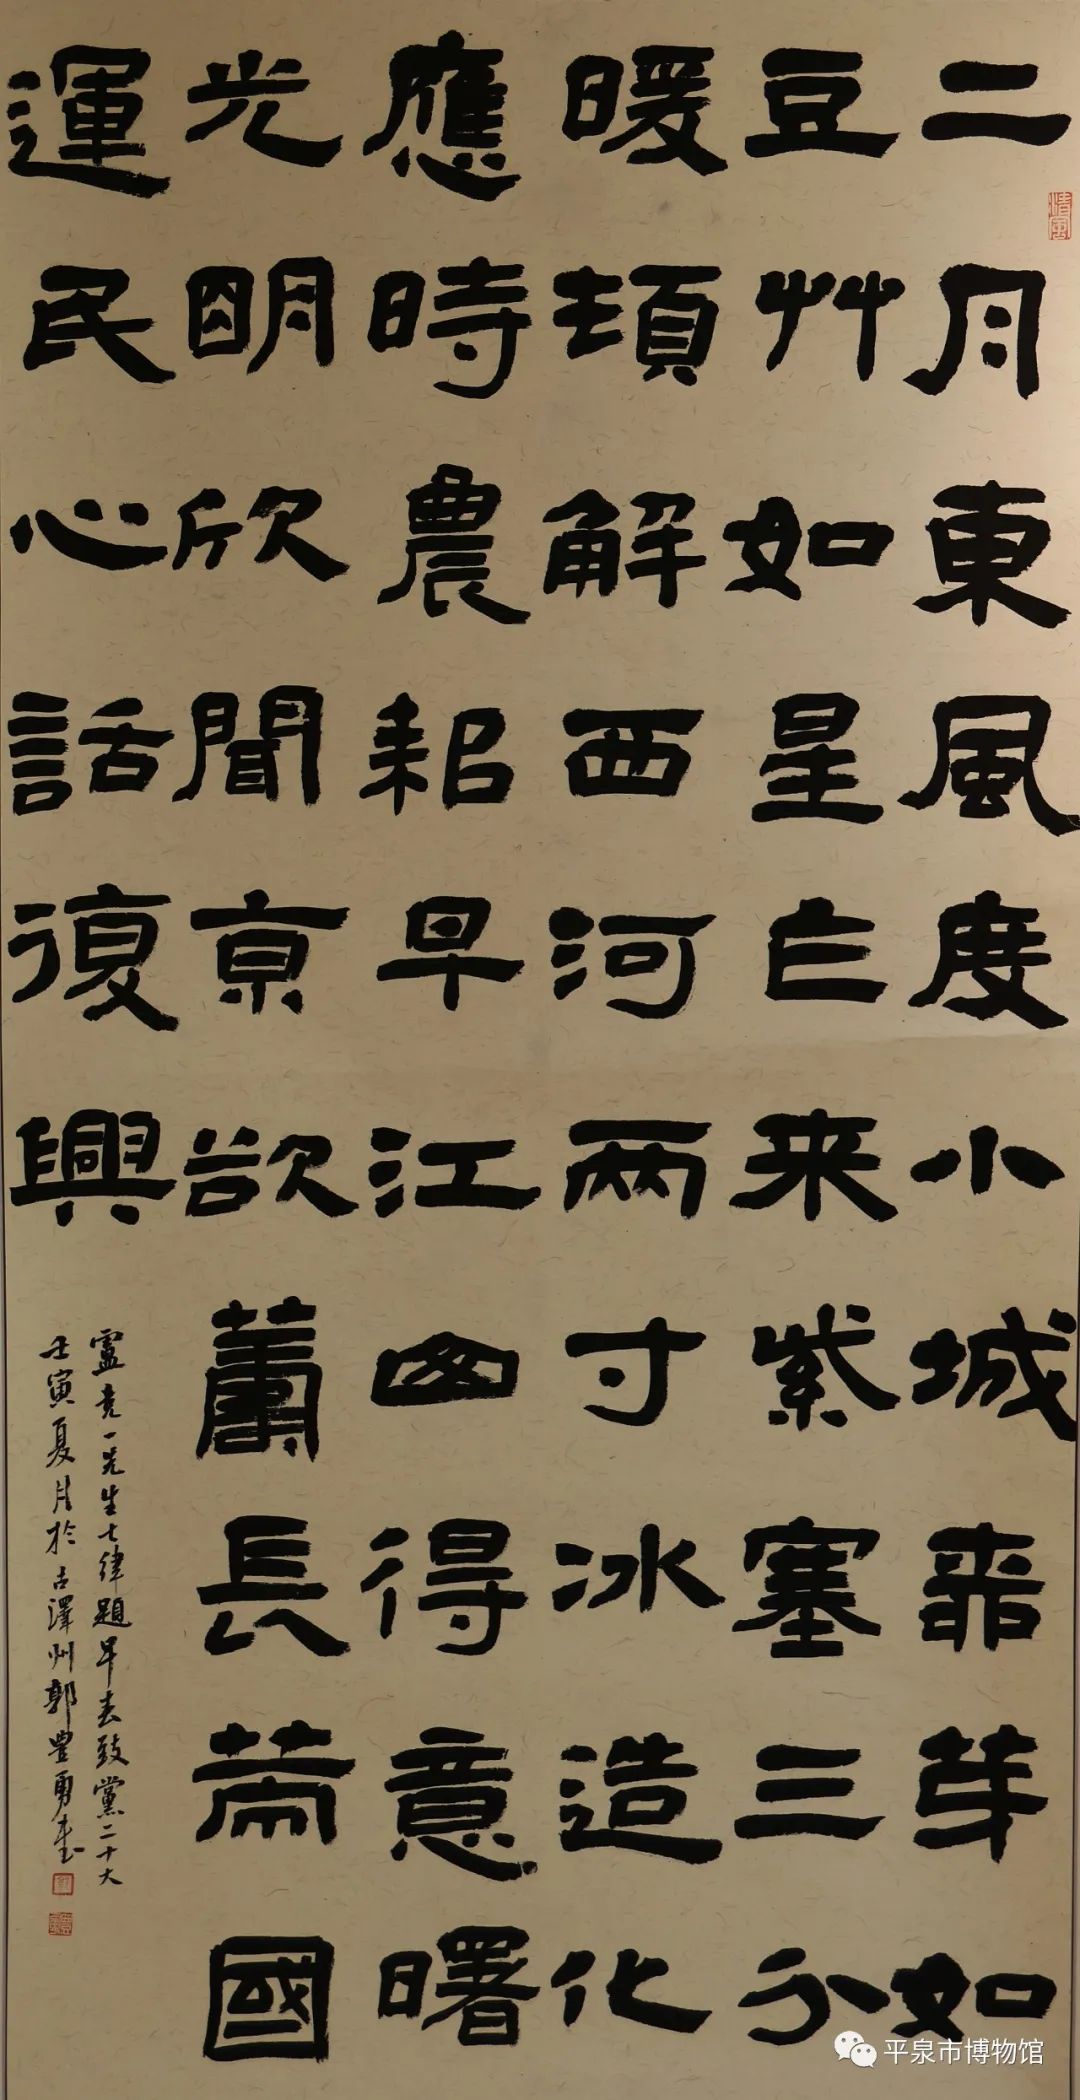 二月東風度小城芽如
豆艸如星乍来紫塞三分
暖頓解西河兩寸冰造化
應時農耜早江山得意曙
光明欣聞京欲籌長策國
運民心話復興
盧一先生七律題早春致黨二十大
壬寅夏月於古澤州郭豐勇書
清風
平泉市博物馆